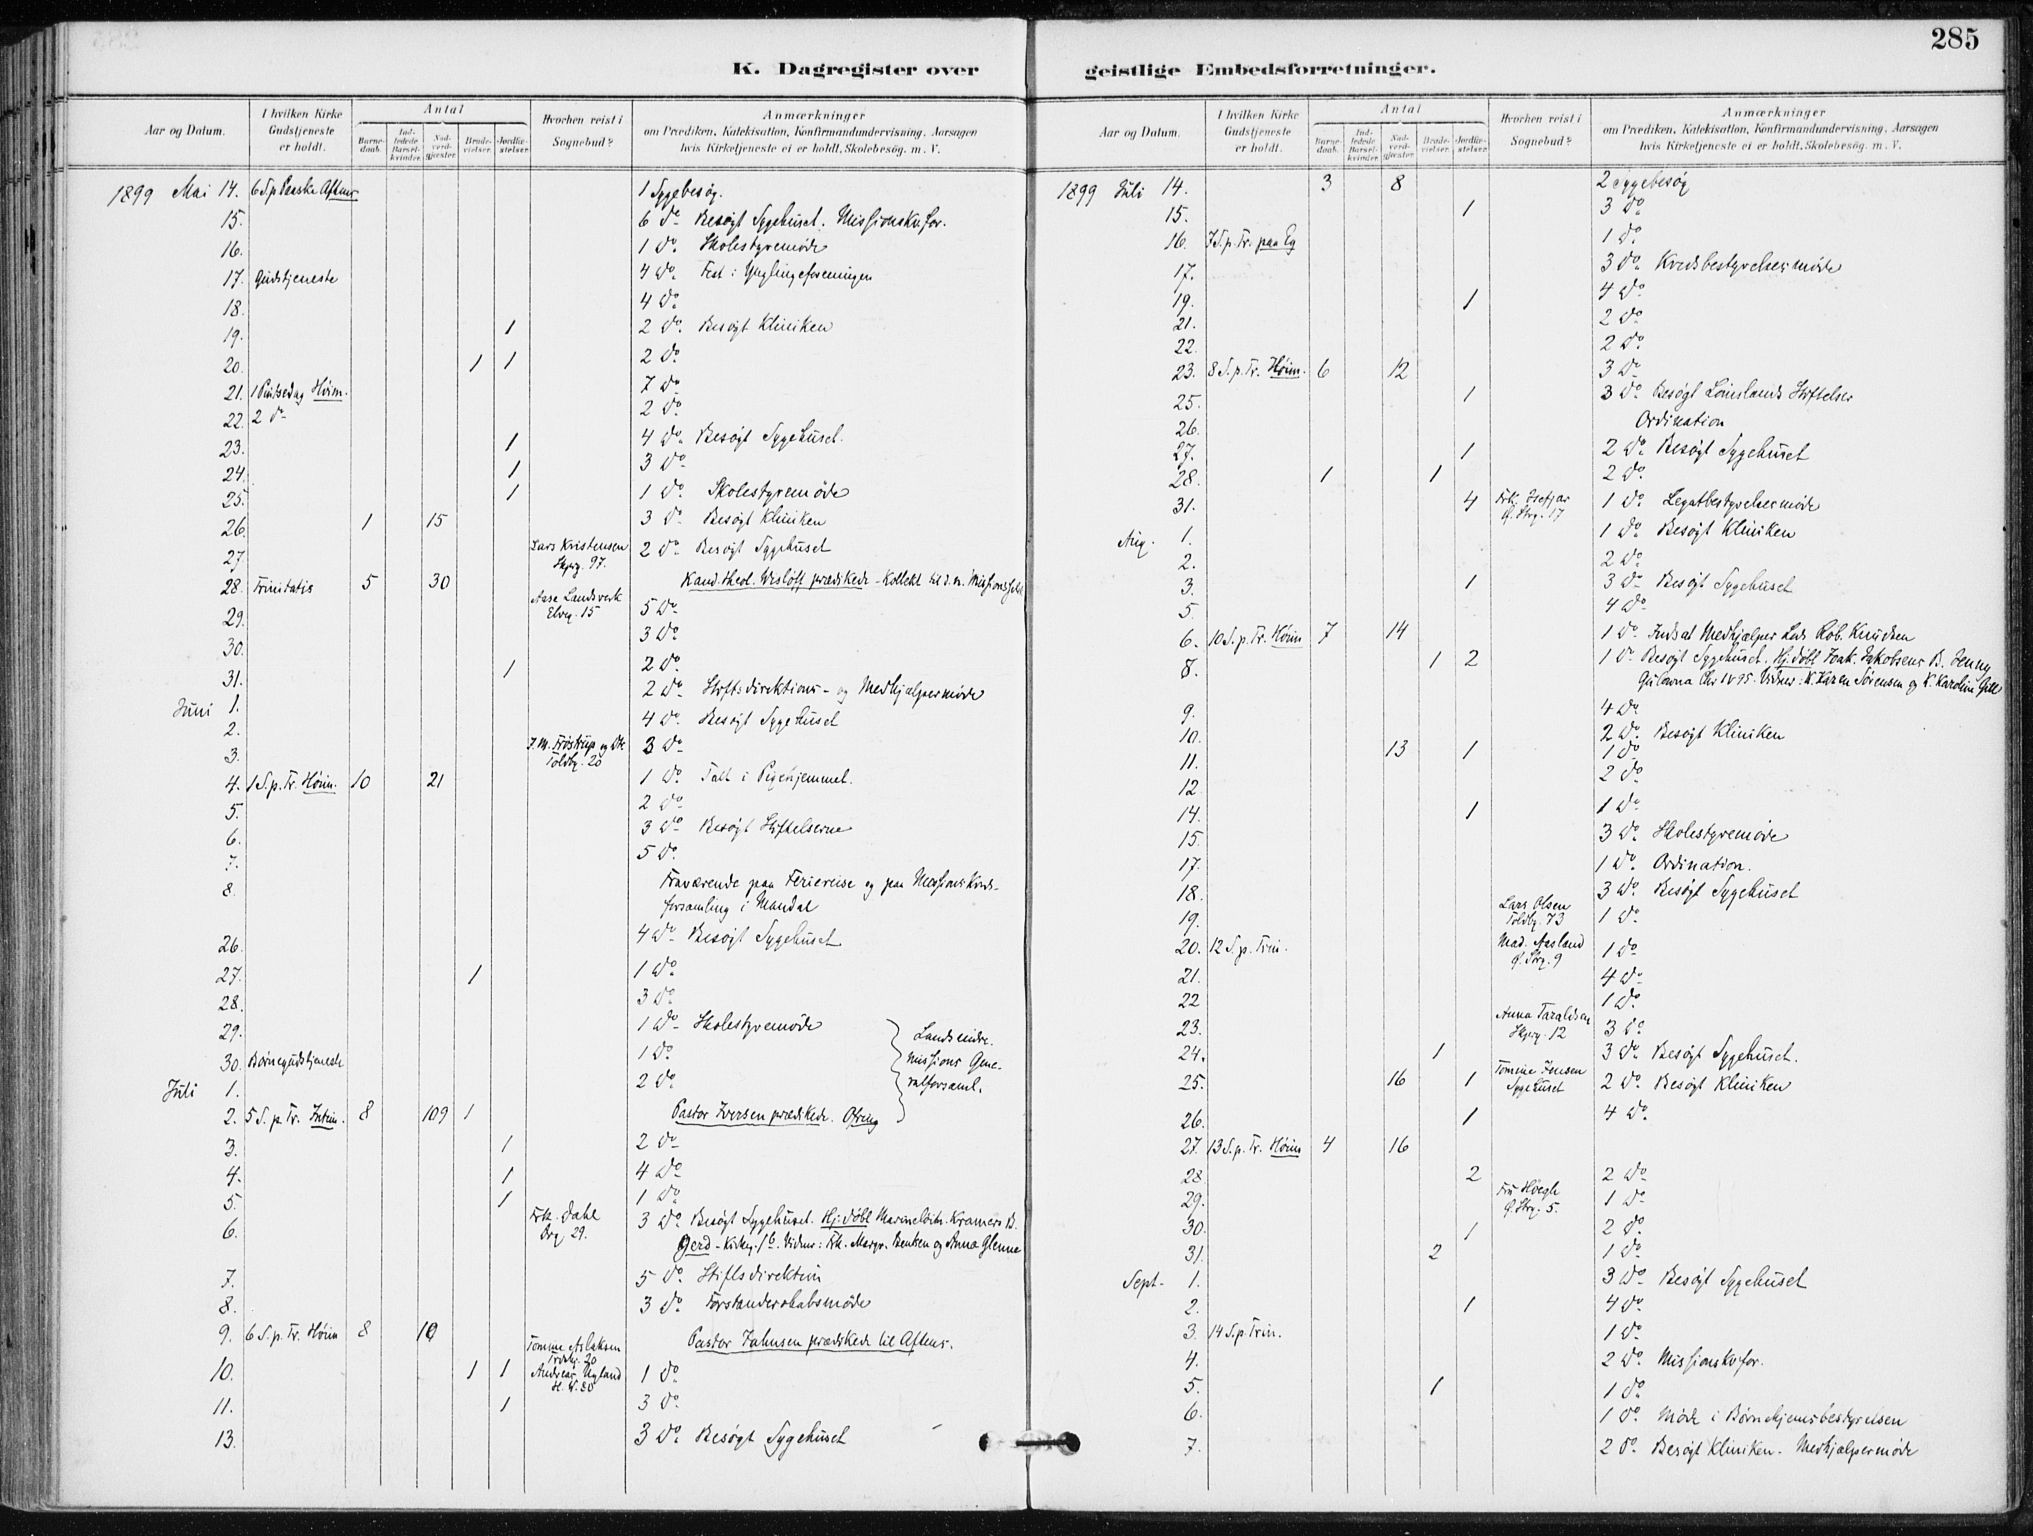 285
K. Dagregister over geistlige Embedsforretninger.
Aar og Datum. I hvilken Kirke Gudstjeneste er holdt. Antal Barnedaab. Indledede Barselkvinder. Nadverdgjester. Brudevielser. Jordfæstelser. Hvorhen reist i Sognebud? Anmærkninger om Prædiken, Katekisation, Konfirmandundervisning, Aarsagen hvis Kirketjeneste ei er holdt, Skolebesøg. m. V.
1899 Mai 14. 6 S p Paaske Aftens. 1 Sygebesøg.
15. 6 do Besøgt Sygehuset. Missionskv.for.
16. 1 do Skolestyremøde
17. Gudstjeneste 4 do Fest i Ynglingeforeningen
18. 4 do
19. 1 2 do Besøgt Kliniken
20. 1 1 2 do
21. 1 Pintsedag Høim. 7 do
22. 2 do 2 do
23. 1 4 do Besøgt Sygehuset.
24. 1 3 do
25. 1 1 do Skolestyremøde
26. 1 15 3 do Besøgt Kliniken
27. Lars Kristensen Skprg. 97. 2 do Besøgt Sygehuset
28. Trinitatis 5 30 Kand. theol. Wisløff prædikede - Kollekt til d. n. Missionsselsk
29. Aase Landsverk Elveg. 15 5 do
30. 3 do
31. 1 2 do
Juni 1. 2 do Stiftsdirektions- og Medhjælpermøde
2. 4 do Besøgt Sygehuset
3. J. M. Frøstrup og Dtr Toldbg. 20 3 do
4. 1 S. p. Tr. Høim. 10 21 1 do Talt i Pigehjemmet.
5. 2 do
6. 3 do Besøgt Stiftelserne
7. 5 do
8. Fraværende paa Feriereise og paa Missions Kredsforsamling i Mandal
26. 4 do Besøgt Sygehuset
27. 1 1 do
28. 3 do
29. 1 do Skolestyremøde
30. Børnegudstjeneste 1 do
Juli 1. 2 do
Landsindremissions Generalforsaml.
2. 5 S. p. Tr. 8 109 1 Pastor Iversen prædikede. Ofring
3. 1 2 do
4. 1 4 do
5. 1 1 do
6. Frk. Dahl Drg 29. 3 do Besøgt Sygehuset. Hj: døbt Kramers B.
Gerd - Vidner: Frk. Margr. Bentsen og Anna Glenne
7. 5 do Stiftsdirektion
8. 3 do Forstanderskabsmøde
9. 6 S. p. Tr. Høim 8 10 Pastor Jahnsen prædikede til Aftens.
Tomine Aslaksen 20
10. 1 1 Andreas Ugland 1 do
11. 1 3 do
13. 3 do Besøgt Sygehuset
Aar og Datum. I hvilken Kirke Gudstjeneste er holdt. Antal Barnedaab. Indledede Barselkvinder. Nadverdgjester. Brudevielser. Jordfæstelser. Hvorhen reist i Sognebud? Anmærkninger om Prædiken, Katekisation, Konfirmandundervisning, Aarsagen hvis Kirketjeneste ei er holdt. Skolebesøg. m. V.
1899 Juli 14. 3 8 2 Sygebesøg
15. 1 3 do
16. 7 S. p. Tr. paa Eg 1 do
17. 3 do Kredsbestyrelsesmøde
19. 1 4 do
21. 2 do
22. 2 do
23. 8 S. p. Tr. Høim. 6 12 3 do
25. 1 3 do Besøgt Stiftelser
26. Ordination
27. 1 2 do Besøgt Sygehuset
28. 1 1 2 do
31. 4 Ø. Strg. 17 1 do Legatbestyrelsesmøde
Aug. 1. 1 do Besøgt Kliniken
2. 2 do
3. 1 3 do Besøgt Sygehuset
5. 4 do
6. 10 S. p. Tr. Høim 7 14 1 do Indsat Medhjælper Rob. Knudsen
8. 1 2 1 do Besøgt Sygehuset. Hj: døbt Joak. Jakobsens B. Jenny
1895. Vidner: K. Karen Sørensen og K. Karoline Gill
9. 4 do
10. 2 do Besøgt Kliniken
11. 13 1 1 do
12. 2 do
14. 1 1 do
15. 3 do Skolestyremøde
17. 1 do Ordination.
18. 3 do Besøgt Sygehuset
19. Lars Olsen Toldbg. 73 1 do
20. 12 S. p. Trin. Mad. Aasland Ø. Strg. 9 1 do
21. 4 do
22 1 do
23. Anna Taraldsen Skprg. 12 3 do
24. 1 3 do Besøgt Sygehuset.
25. 16 1 Tomine Jensen Sygehuset 2 do Besøgt Kliniken
26. 1 4 do
27. 13 S. p. Tr. Høim 4 16
28 2 2 do
29. Fru Høegh Ø. Strg. 5. 1 do
30. 1 2 do
31. 2 1 do
Sept. 1. 3 do Besøgt Sygehuset
2. 1 4 do
3. 14 S. p. Trin. 1 do
4. 2 do Missionskvfor.
5. 1 1 do
6. 1 do Møde i Børnehjemsbestyrelsen
7. 2 do Besøgt Kliniken. Medhjælpermøde